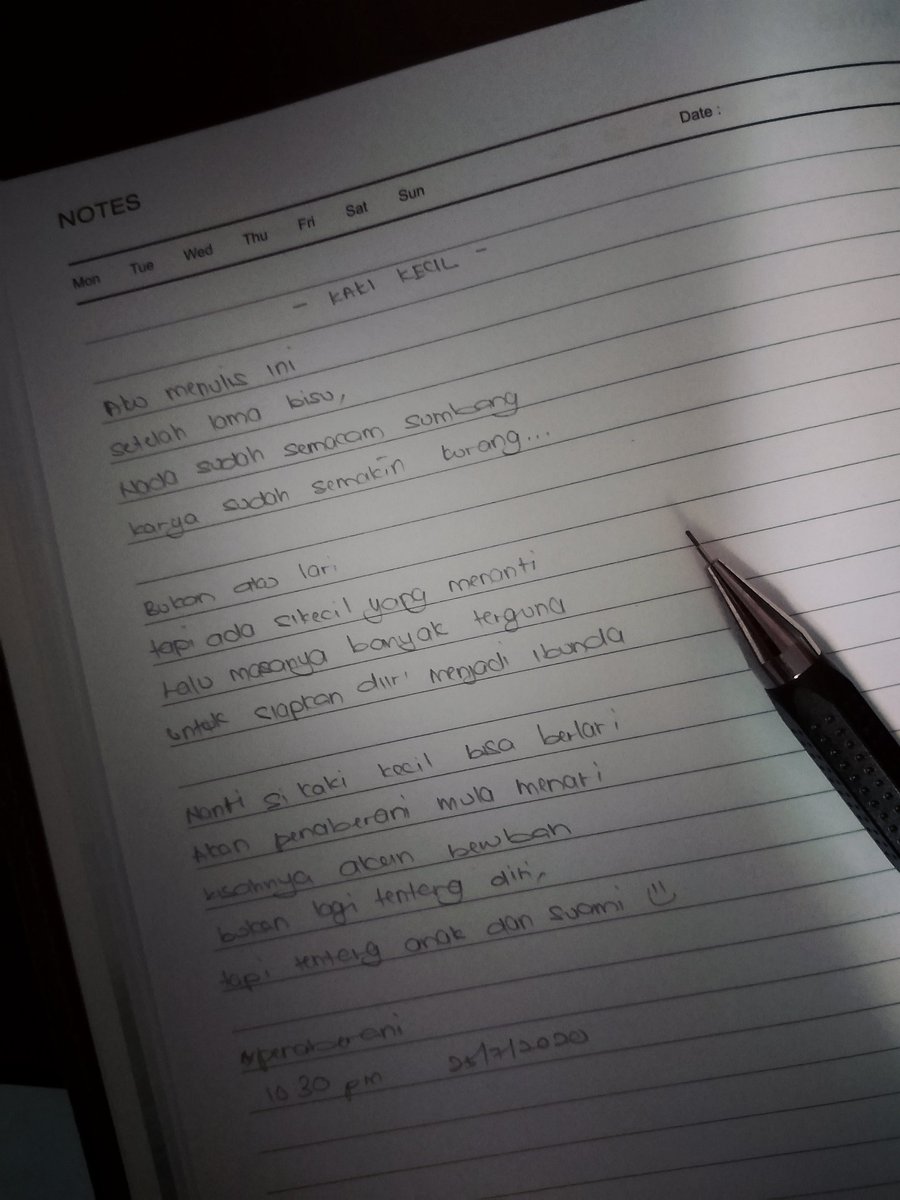 NOTES
Date :
Mon Tue Wed Thu Fri Sat Sun
- KAKI KECIL -
Aku menulis ini
setelah lama bisu,
Nada sudah semacam sumbang
karya sudah semakin kurang...
Bukan aku lari
tapi ada sikecil yang menanti
Lalu masanya banyak terguna
untuk siapkan diri menjadi ibunda
Nanti si kaki kecil bisa berlari
Akan penaberani mula menari
kisahnya akan berubah
bukan lagi tentang diri,
tapi tentang anak dan suami
penaberani
10 30 pm /7/2020